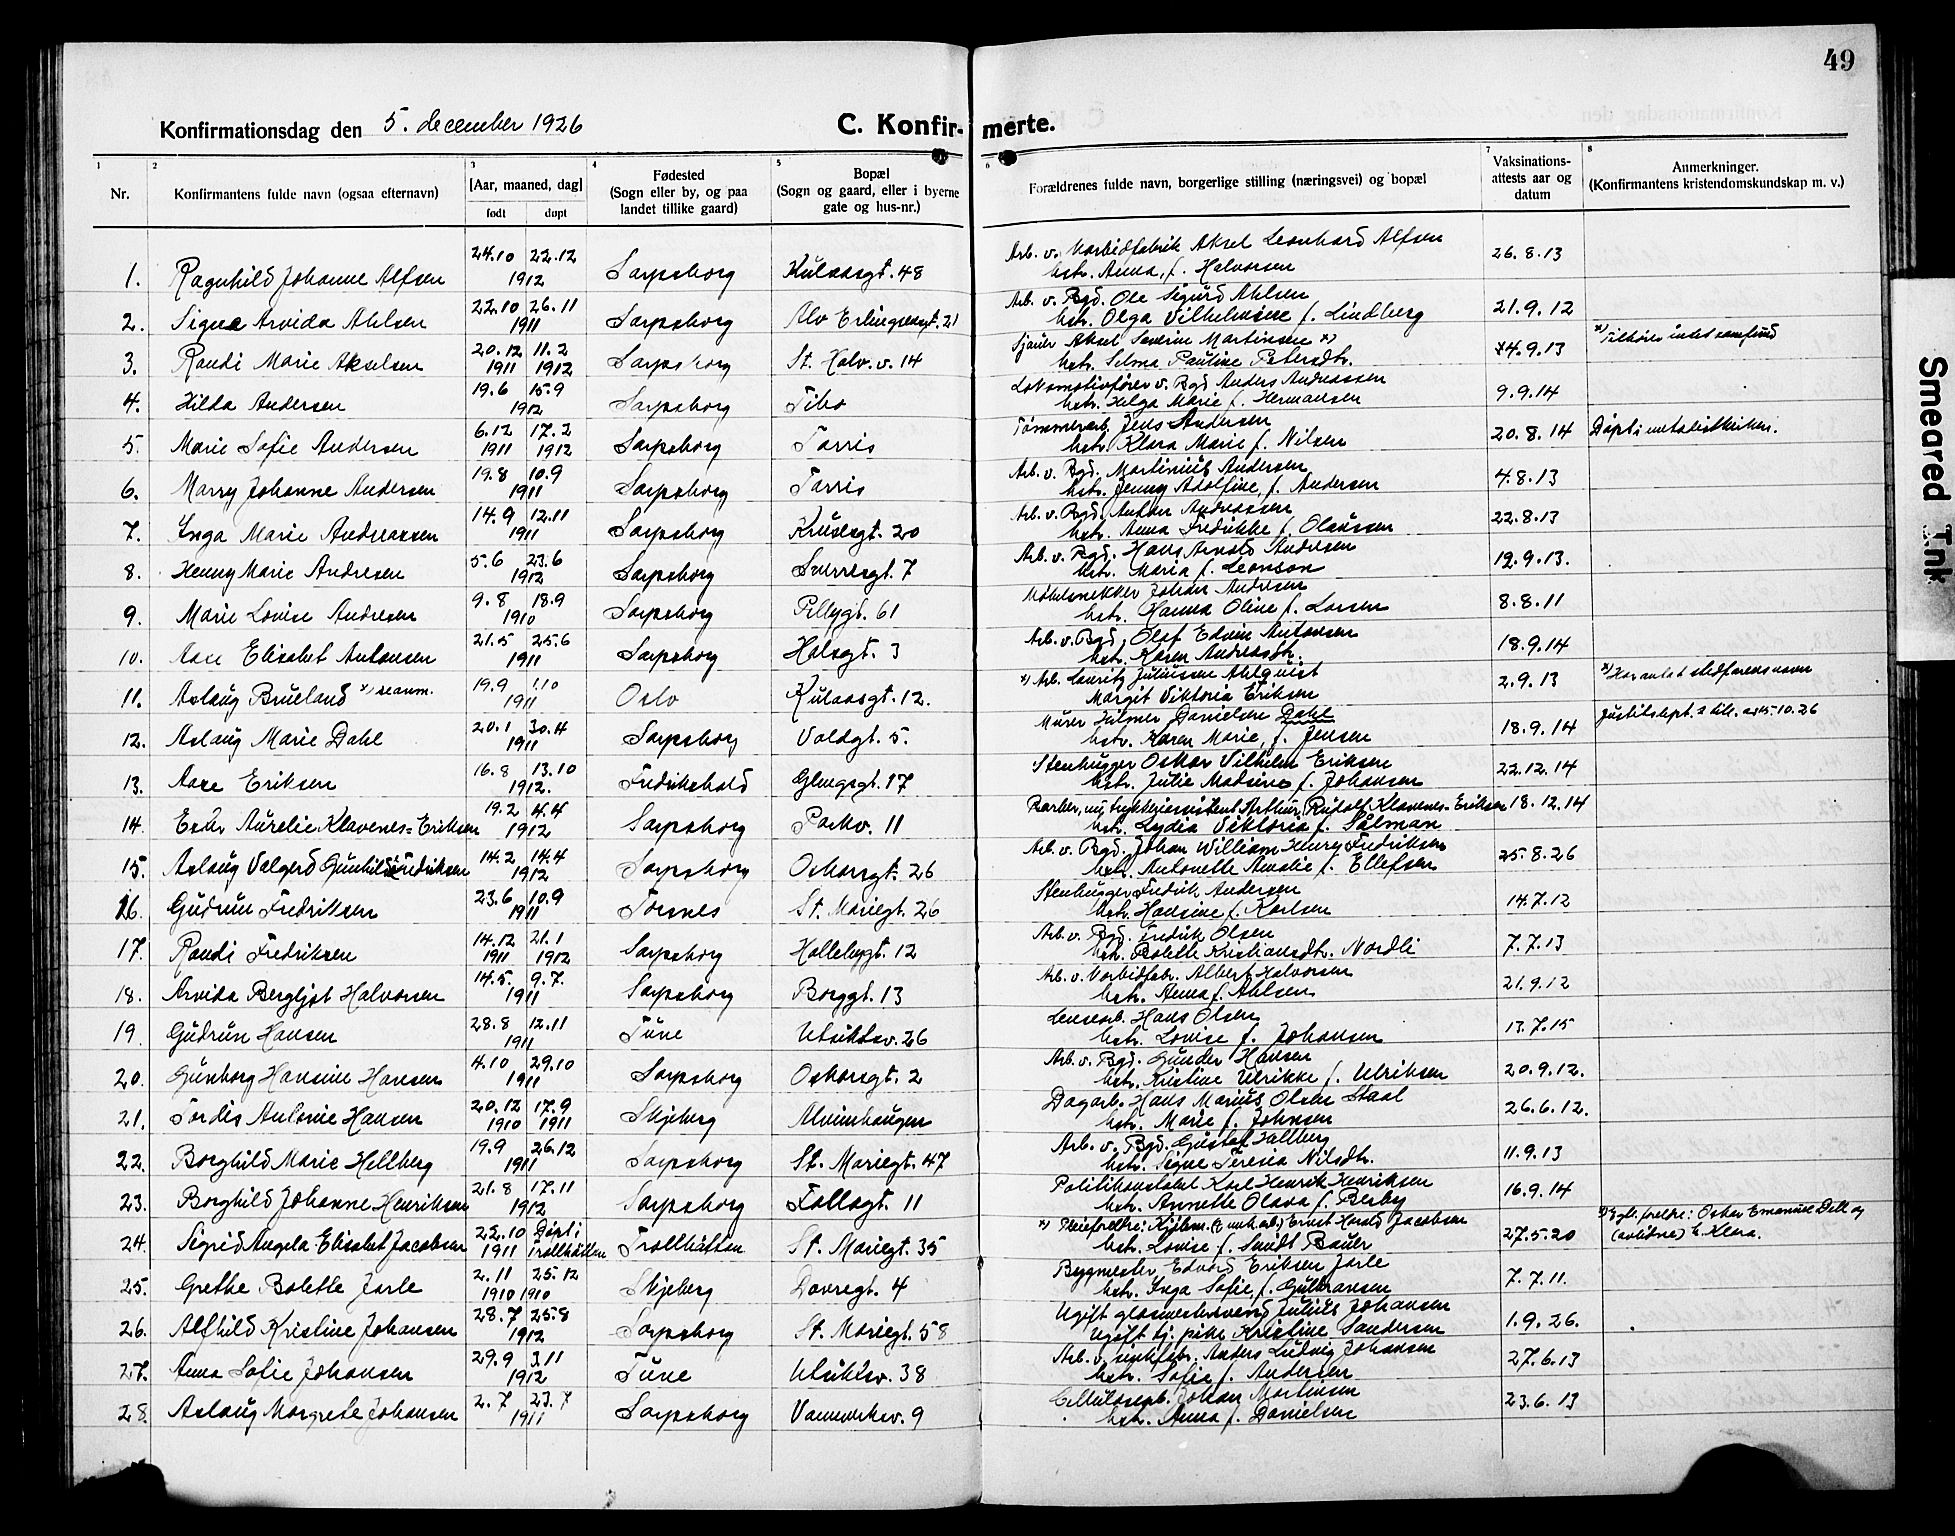 49
Konfirmationsdag den 5. december 1926
C. Konfir- merte.
1 2 3 4 5 6 7 8
Nr.
Konfirmantens fulde navn (ogsaa efternavn)
[Aar, maaned, dag]
født døpt
Fødested
(Sogn eller by, og paa
landet tillike gaard)
Bopæl
(Sogn og gaard, eller i byerne
gate og hus-nr.)
Forældrenes fulde navn, borgerlige stilling (næringsvei) og bopæl
Vaksinations-
attests aar og
datum
Anmerkninger.
(Konfirmantens kristendomskundskap m. v.)
24.10 22.12 Arb. v. Aksel Leonhard Alfsen
1. Ragnhild Johanne Alfsen 1912 Sarpsborg Kulaasgt. 48 hstr. Anna, f. Halvorsen 26.8.13
22.10 26.11 Arb. v. Bgd. Ole Sigurd Ahlsen
2. Signe Arvida Ahlsen 1911 Sarpsborg Alv Erlingsensgt. 21 hstr. Olga Vilhelmine f. Lindberg 21.9.12
20.12 11.2 Sjauer Aksel Severin Martinsen x) x) Tilhører intet samfund
3. Randi Marie Akselsen 1911 1912 Sarpsborg St. Halv. v. 14 hstr. Selma Pauline Petersdtr. 14.9.13
19.6 15.9 Lokomotivfører v. Bgd Anders Andreassen
4. Hilda Andersen 1912 Sarpsborg Tibo hstr. Helga Marie f. Hermansen 9.9.14
6.12 17.2 Tømmerarb. Jens Andersen
5. Marie Sofie Andersen 1911 1912 Sarpsborg Torris hstr. Klara Marie f. Nilsen 20.8.14 Døpt i metodistkirken.
19.8 10.9 Arb. v. Bgd. Martinius Andersen
6. Marry Johanne Andersen 1911 Sarpsborg Torris hstr. Jenny Adolfine, f. Andersen 4.8.13
14.9 12.11 Arb. v. Bgd. Anton Andreassen
7. Inga Marie Andreassen 1911 Sarpsborg Krusesgt. 20 hstr. Anna Fredrikke f. Olaussen 22.8.13
5.6 23.6 Arb. v. Bgd. Hans Arnold Andresen
8. Henny Marie Andresen 1912 Sarpsborg Sverresgt. 7 hstr. Maria f. Leonson 12.9.13.
9.8 18.9 Møbelsnekker Johan Andresen
9. Marie Lovise Andresen 1910 Sarpsborg Pellygt. 61 hstr. Hanna Oline f. Larsen 8.8.11
21.5 25.6 Arb. v. Bgd. Olaf Edvin Antonsen
10. Aase Elisabet Antonsen 1911 Sarpsborg Halsgt. 3 hstr. Karen Andreasdtr. 18.9.14
19.9 1.10 x) Arb. Lauritz Juliussen Ahlquist x) Har antat stedfarens navn
11. Aslaug Brueland x) se anm. 1911 Oslo Kulaasgt. 12. Margit Viktoria Eriksen 2.9.13
20.1 30.4 Murer Hilmer Danielsen Dahl Justitsdept.
12. Aslaug Marie Dahl 1911 Sarpsborg Voldgt. 5. hstr. Karen Marie, f. Jensen 18.9.14
16.8 13.10 Stenhugger Oskar Vilhelm Eriksen
13. Aase Eriksen 1912. Fredrikshald Glengsgt. 17 hstr. Julie Madsine f. Johansen 22.12.14
19.2 4.4 Barber, Arthur Rudolf Klavenes-Eriksen
14. Ester Aurelie Klavenes-Eriksen 1912 Sarpsborg Parkv. 11 hstr. Lydia Viktoria f. Salman 18.12.14
14.2 14.4 Arb. v. Bgd. Johan William Henry Fredriksen
15. Aslaug Valgerd Gunhild Fredriksen 1912 Sarpsborg Oskarsgt. 26 hstr. Antonette Amalie f. Ellefsen 25.8.26
23.6 10.9 Stenhugger Fredrik Andersen
16. Gudrun Fredriksen 1911 Torsnes St. Mariegt. 26 hstr. Hansine f. Karlsen 14.7.12
14.12 21.1 Arb. v. Bgd. Fredrik Olsen
17. Randi Fredriksen 1911 1912 Sarpsborg Hallebygt. 12 hstr. Bolette Kristiansdtr. Nordli 7.7.13
14.5. 9.7. Arb. v. Albert Halvorsen
18. Arvida Bergljot Halvorsen 1911 Sarpsborg Borggt. 13 hstr. Anna f. Ahlsen 21.9.12
28.8 12.11 Lensearb. Hans Olsen
19. Gudrun Hansen 1911 Tune Utsiktsv. 26 hstr. Lovise f. Johansen 17.7.15
4.10 29.10 Arb. v. Bgd. Gunder Hansen
20. Gunborg Hansine Hansen 1911 Sarpsborg Oskarsgt. 2 hstr. Kristine Ulrikke f. Ulriksen 20.9.12.
20.12 17.9 Dagarb. Hans Marius Olsen Staal
21. Tordis Antonie Hansen 1910 1911 Skjeberg Alvimhaugen hstr. Marie f. Johnsen 26.6.12.
19.9 26.12 Arb. v. Bgd. Gustaf Hallberg
22. Borghild Marie Hellberg 1911 Sarpsborg St. Mariegt. 47 hstr. Signe Teresia Nilsdtr. 11.9.13
21.8 17.11 Politikonstabel Karl Henrik Henriksen
23. Borghild Johanne Henriksen 1912 Sarpsborg Follogt. 11 hstr. Annette Olava f. Berby 16.9.14
22.10 Døpt i x) Pleieforeldre: Ernst Harald Jacobsen x) Egtl. foreldre: Oskar Emanuel Dell og
24. Sigrid Angela Elisabet Jacobsen 1911 Trollhätten Trollhätten St. Mariegt. 35 hstr. Lovise f. Sundt Bauer 27.5.20 (avdøde) h. Klara.
2.11 25.12 Bygmester Edvard Eriksen Jarle
25. Grethe Bolette Jarle 1910 1910 Skjeberg Dovregt. 4 hstr. Inga Sofie, f. Gulbransen 7.7.11.
28.7 25.8 Ugift glasmestersvend Julius Johansen
26. Alfhild Kristine Johansen 1912 Sarpsborg St. Mariegt. 58 Ugift tj. pike Kristine Sandersen 1.9.26.
29.9 3.11 Arb. v. sinkfabr. Anders Ludvig Johansen
27. Anna Sofie Johansen 1912 Tune Utsiktsv. 38 hstr. Sofie f. Andersen 27.6.13
2.7 23.7 Cellulosearb. Johan Martinsen
28. Aslaug Margrete Johansen 1911 Sarpsborg Vannverksv. 9 hstr. Anna f. Danielsen 23.6.13
Smeared Ink